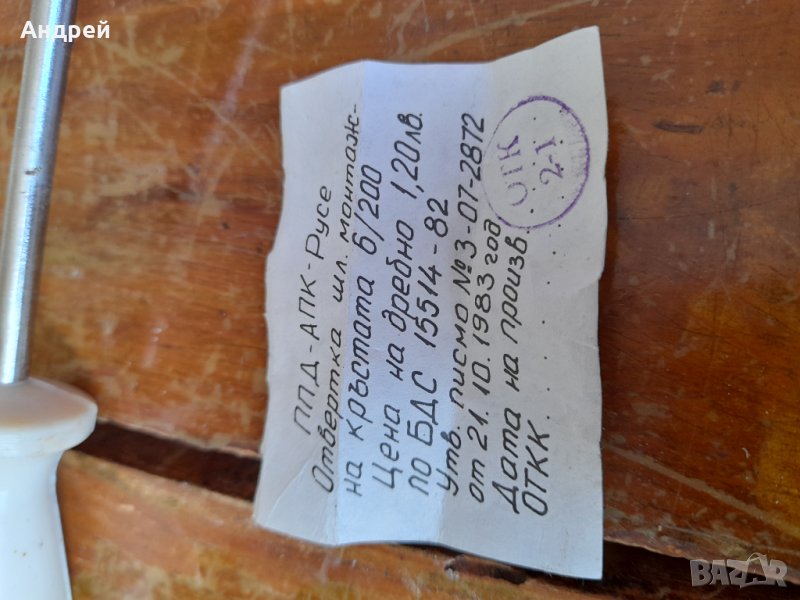 Андрей
ППД-АПК-Русе
Отвертка шл. монтаж-
на кръстата 6/200
Цена на дребно 1,20лв.
по БДС 15514-82
Утв. писмо № 3-07-2872
от 21.10.1983 год.
Дата на произв. . . . . .
ОТКК. . . . . . . . .
ОТК
2-1
BAZAR